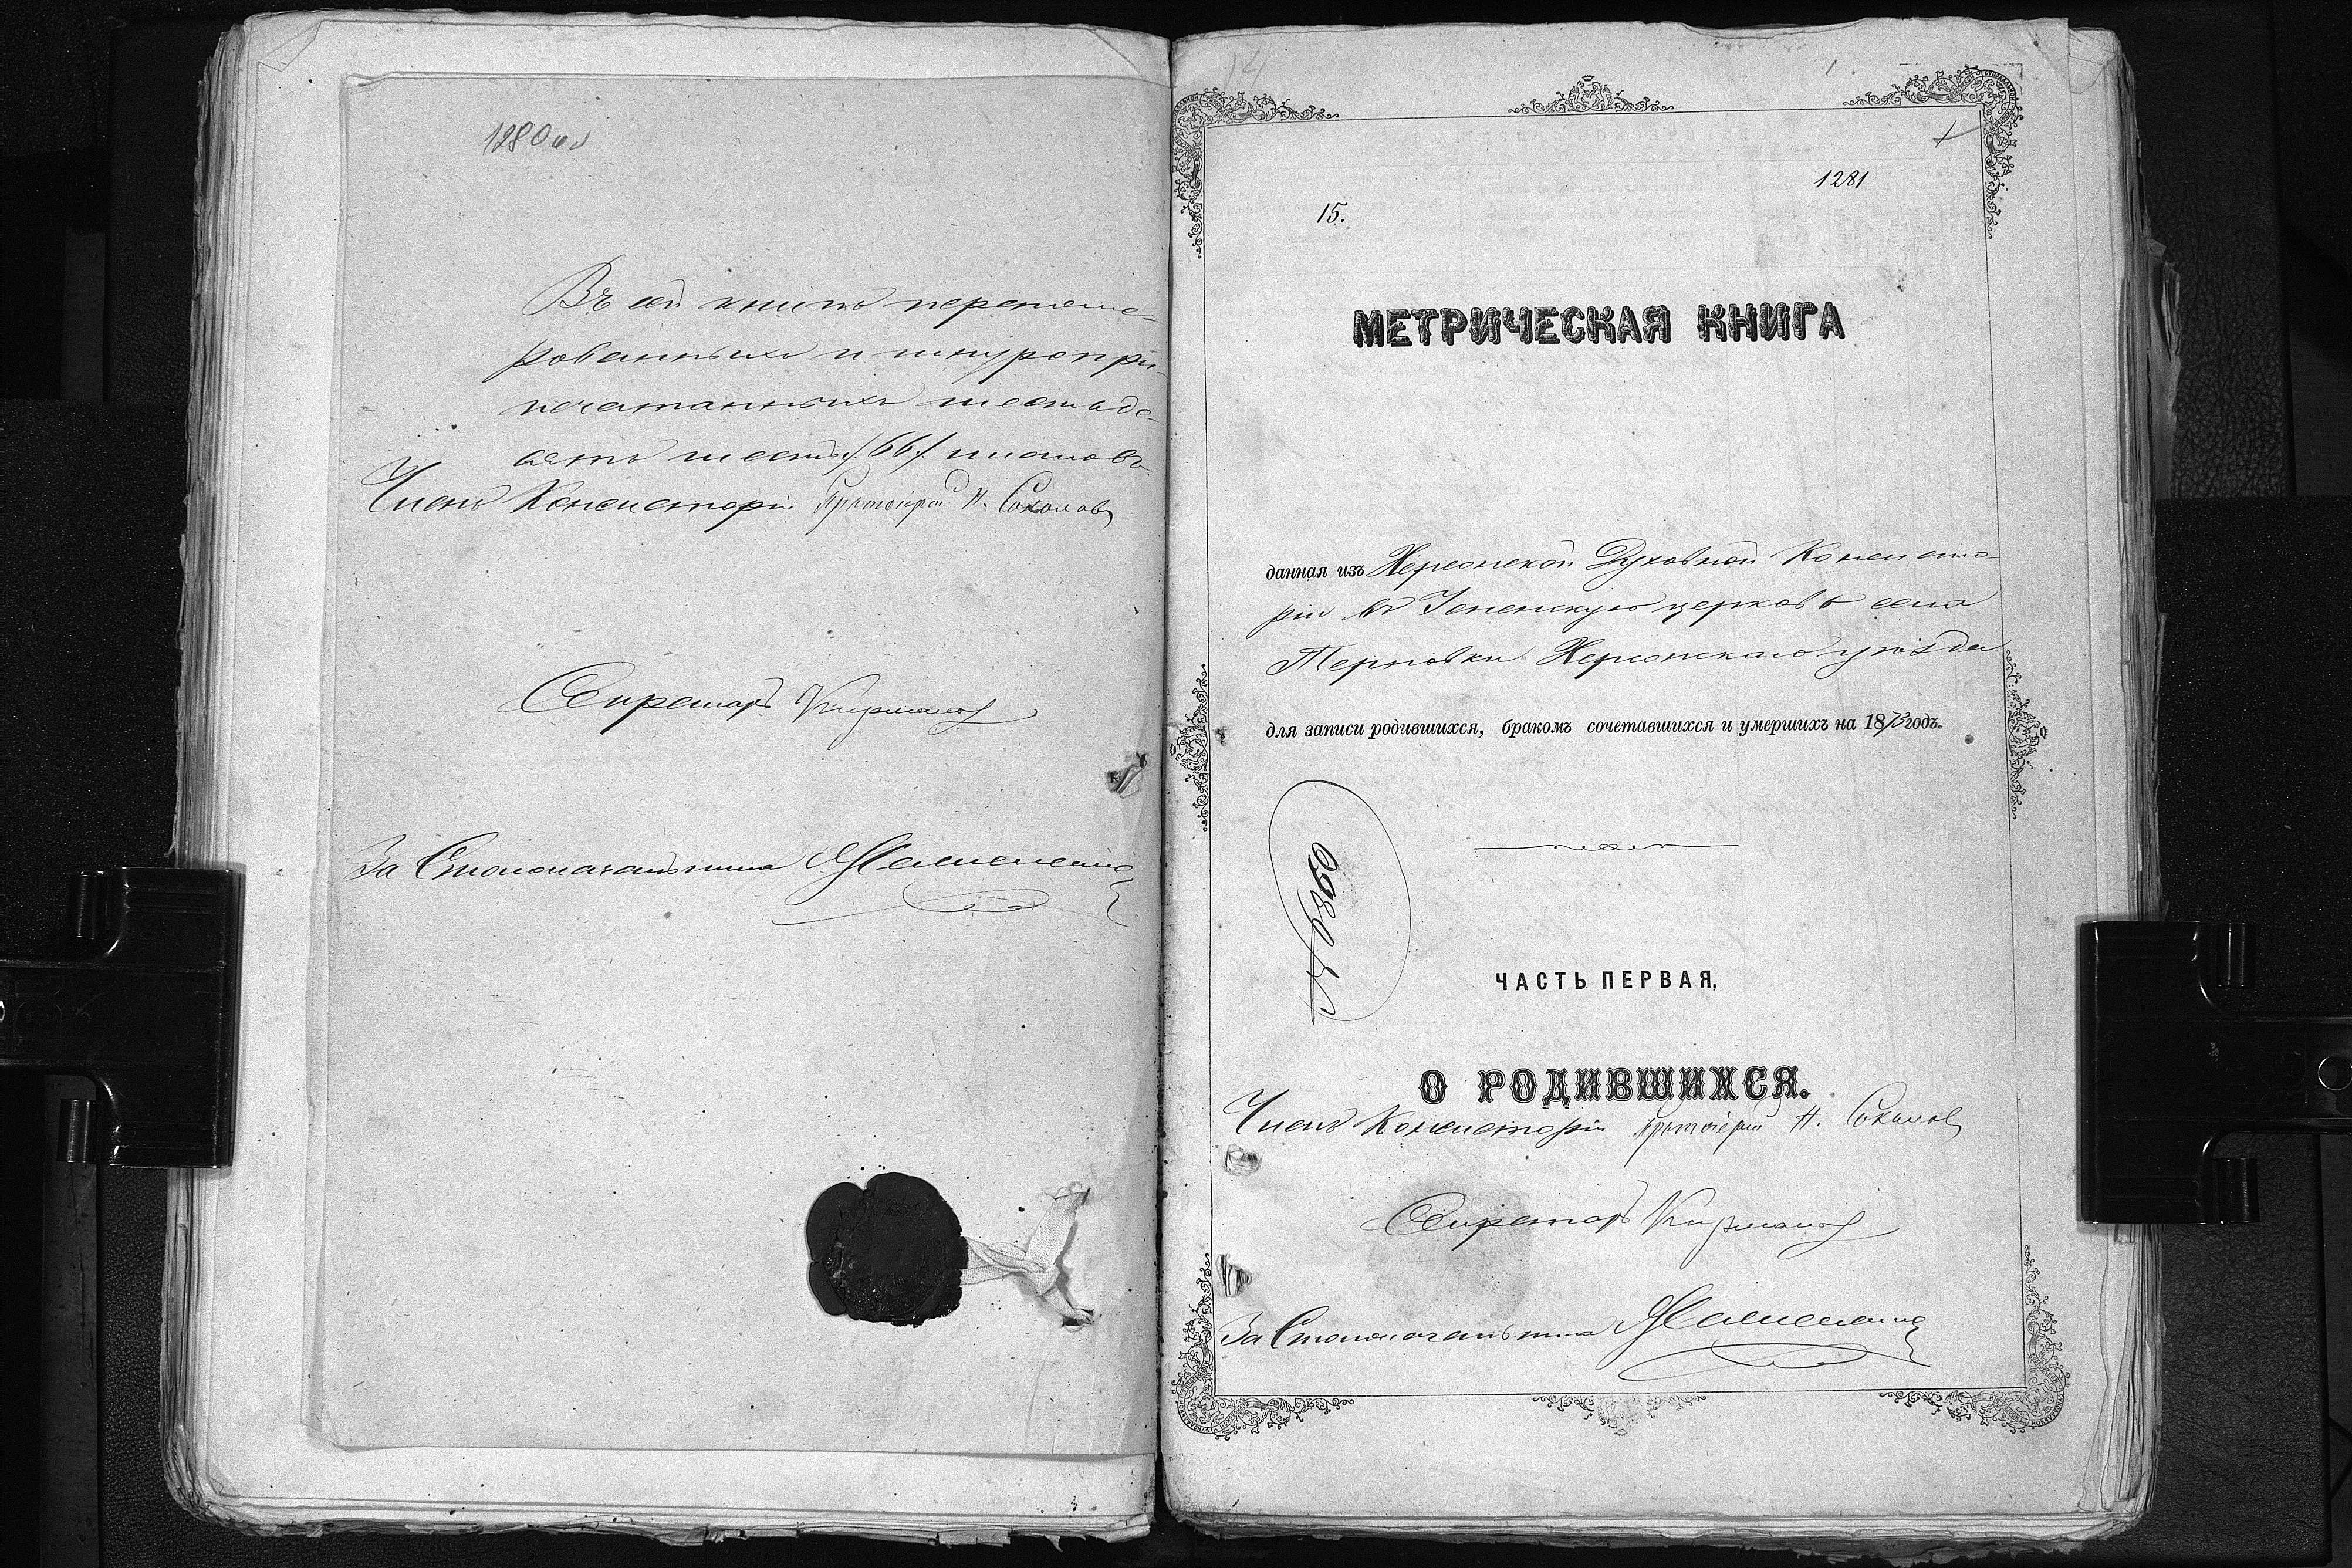 1280 об
Въ сей книгѣ перенуме-
рованныхъ и шнуропри-
печатанныхъ шестьде-
сятъ шесть /66/ листовъ
Членъ Консисторіи Протоіерей Н. Соколовъ
Секретарь
За Столоначальника
14
1281
15.
МЕТРИЧЕСКАЯ КНИГА
данная изъ Херсонской Духовной Консисто-
ріи въ Успенскую церковь села
Терновки Херсонскаго уѣзда
для записи родившихся, бракомъ сочетавшихся и умершихъ на 1873 годъ.
№ 6360
ЧАСТЬ ПЕРВАЯ,
О РОДИВШИХСЯ.
Членъ Консисторіи Протоіерей Н. Соколовъ
Секретарь
За Столоначальника